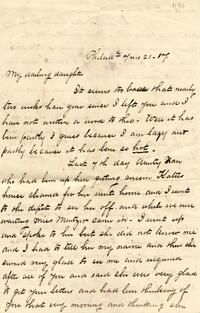 Philad^a June 21-87.
My darling daughter
It seems too bad that nearly
two weeks has gone since I left you and I
have not written a word to thee. Well it has
been partly I guess because I am lazy and
partly because it has been so hot.
Last 7th day Aunty
who had been up her getting Kates
house cleaned for her went home and I went
to the depot to see her off, and while we were
waiting Miss came in. I went up
and spoke to her but she did not know me
and I had to tell her my name and then she
seemed very glad to see me and inquired
after all of you and said she was very glad
to get your letter and had been thinking of
you that very morning and thinking she